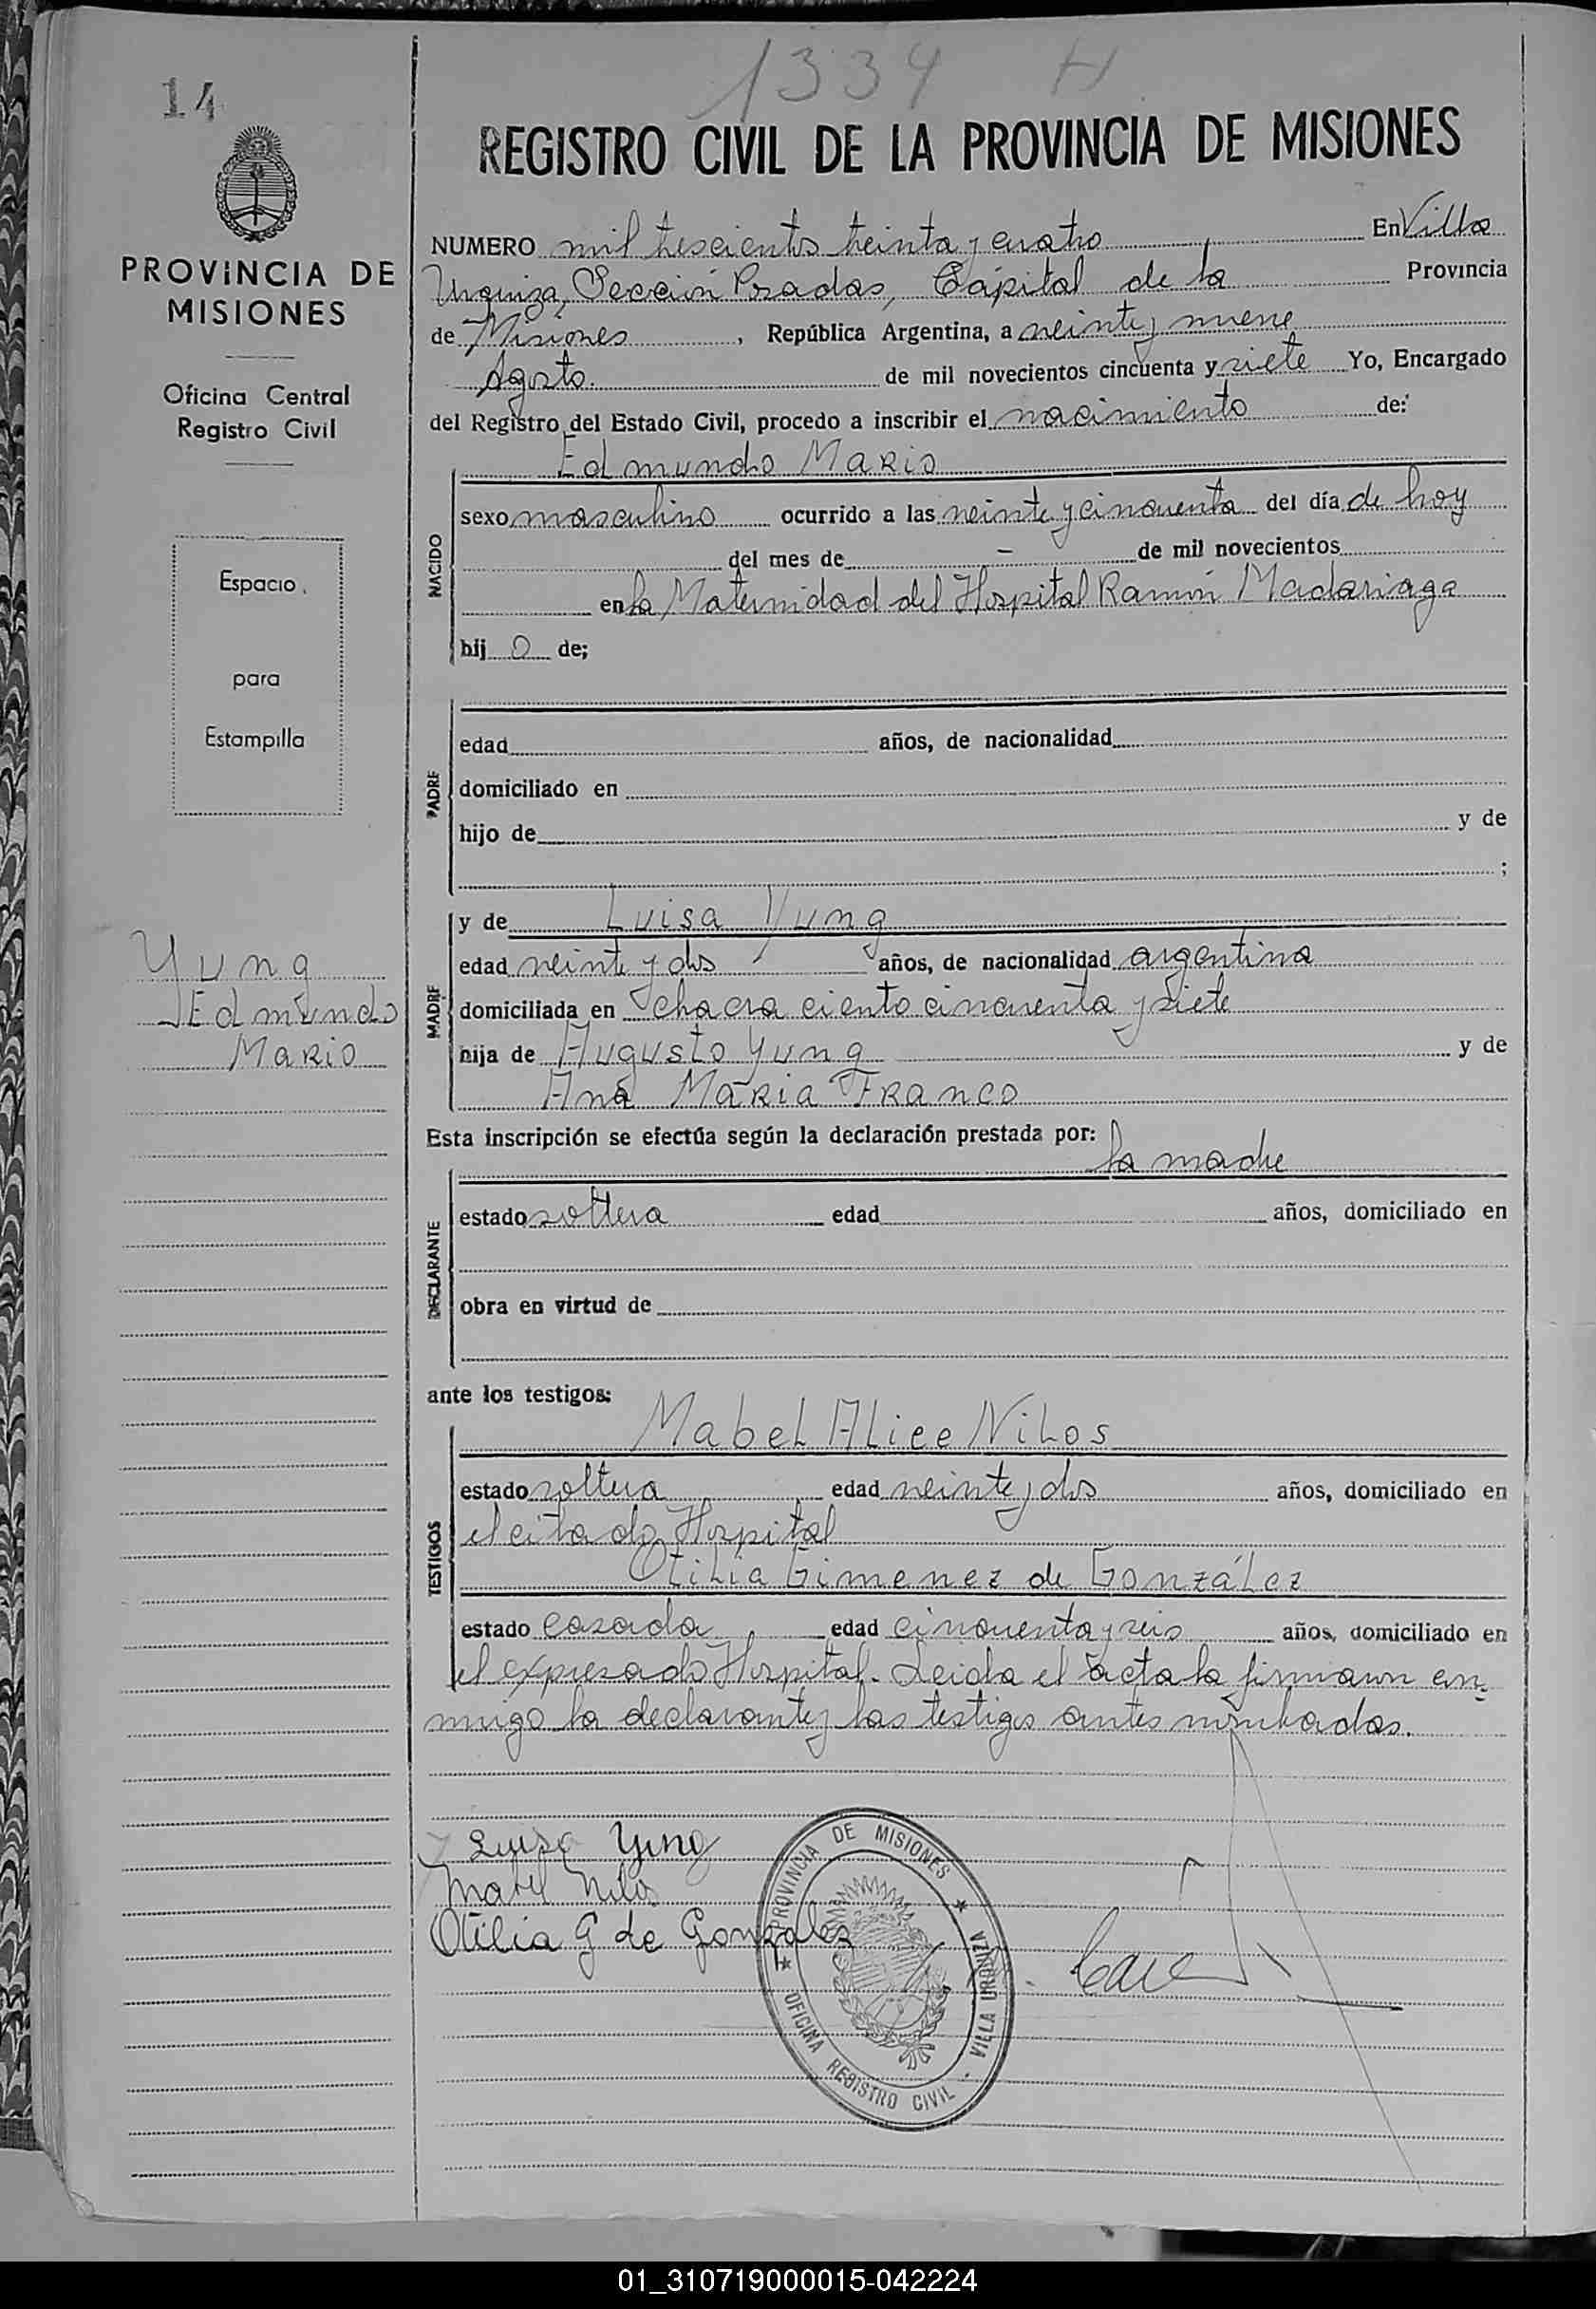 14
1334 H
REGISTRO CIVIL DE LA PROVINCIA DE MISIONES
PROVINCIA DE
MISIONES
Oficina Central
Registro Civil
Espacio
para
Estampilla
Yung
Edmundo
Mario
NUMERO mil trescientos treinta y cuatro En Villa
Urquiza, Sección Posadas, Cápital de la Provincia
de Misiones, República Argentina, a veinte y nueve
Agosto. de mil novecientos cincuenta y siete Yo, Encargado
del Registro del Estado Civil, procedo a inscribir el nacimiento de:
NACIDO
Edmundo Mario
sexo masculino ocurrido a las veinte y cincuenta del día de hoy
del mes de - de mil novecientos
en la Maternidad del Hospital Ramón Madariaga
hij o de;
PADRE
edad años, de nacionalidad
domiciliado en
hijo de y de
;
MADRE
y de Luisa Yung
edad veinte y dos años, de nacionalidad argentina
domiciliada en chacra ciento cincuenta y siete
hija de Augusto Yung y de
Ana Maria Franco
Esta inscripción se efectúa según la declaración prestada por:
la madre
DECLARANTE
estado soltera edad años, domiciliado en
obra en virtud de
ante los testigos:
TESTIGOS
Mabel Alice Nilos
estado soltera edad veinte y dos años, domiciliado en
el citado Hospital
Otilia Gimenez de González
estado casada edad cincuenta y seis años, domiciliado en
el expresado Hospital. Leida el acta la firmaron con-
migo la declarante y las testigos antes nombradas.
Luisa Yung
Mabel Nilos
Otilia G de Gonzalez
PROVINCIA DE MISIONES
OFICINA REGISTRO CIVIL - VILLA URQUIZA
01_310719000015-042224